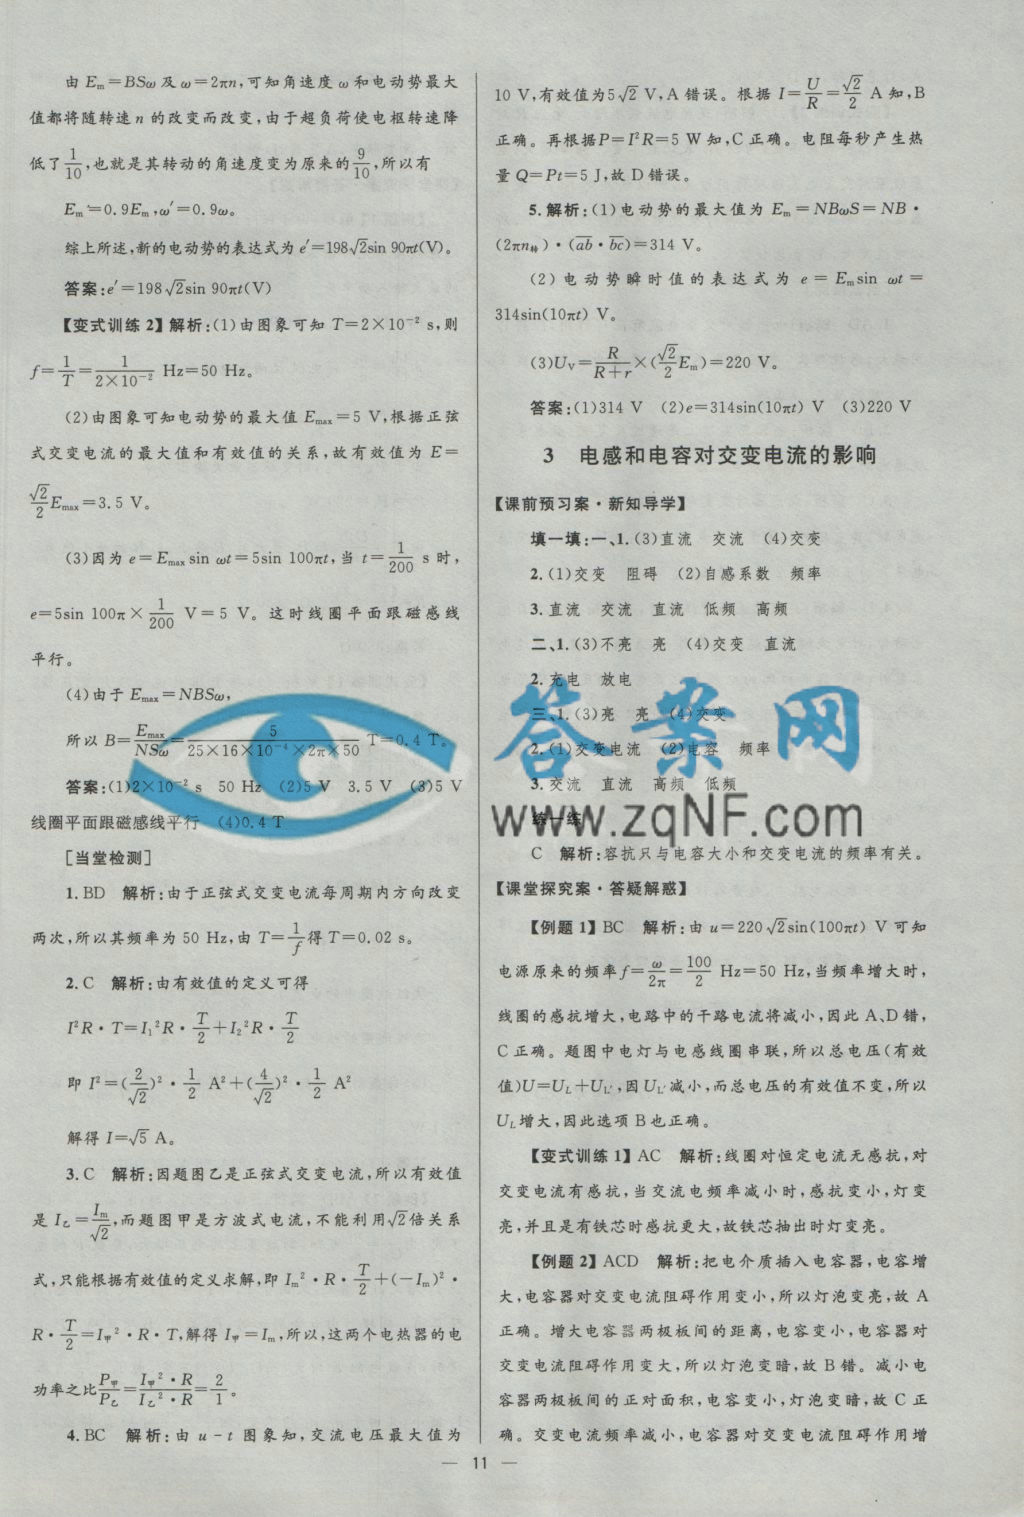 由 Eₘ=BSω及ω=2πn,可知角速度 ω和电动势最大
值都将随转速 n 的改变而改变,由于超负荷使电枢转速降
低了1/10,也就是其转动的角速度变为原来的9/10,所以有
Eₘ′=0.9Eₘ,ω′=0.9ω。
综上所述,新的电动势的表达式为 e′=198√2sin 90πt(V)。
答案:e′=198√2sin 90πt(V)
【变式训练 2】解析:(1)由图象可知 T=2×10⁻² s,则
f=1/T=1/(2×10⁻²) Hz=50 Hz。
(2)由图象可知电动势的最大值 Eₘₐₓ=5 V,根据正弦
式交变电流的最大值和有效值的关系,故有效值为 E=
√2/2 Eₘₐₓ=3.5 V。
(3)因为 e=Eₘₐₓsin ωt=5sin 100πt,当 t=1/200 s 时,
e=5sin 100π×1/200 V=5 V。这时线圈平面跟磁感线
平行。
(4)由于 Eₘₐₓ=NBSω,
所以 B=Eₘₐₓ/NSω=5/(25×16×10⁻⁴×2π×50) T=0.4 T。
答案:(1)2×10⁻² s 50 Hz (2)5 V 3.5 V (3)5 V
线圈平面跟磁感线平行 (4)0.4 T
[当堂检测]
1. BD 解析:由于正弦式交变电流每周期内方向改变
两次,所以其频率为 50 Hz,由 T=1/f得 T=0.02 s。
2. C 解析:由有效值的定义可得
I²R·T=I₁²R·T/2+I₂²R·T/2
即 I²=(2/√2)²·1/2 A²+(4/√2)²·1/2 A²
解得 I=√5 A。
3. C 解析:因题图乙是正弦式交变电流,所以有效值
是 I乙=Iₘ/√2,而题图甲是方波式电流,不能利用√2倍关系
式,只能根据有效值的定义求解,即 Iₘ²·R·T/2+(−Iₘ)²·
R·T/2=I甲²·R·T,解得 I甲=Iₘ,所以,这两个电热器的电
功率之比P甲/P乙=I甲²·R/I乙²·R=2/1。
4. BC 解析:由 u-t 图象知,交流电压最大值为
10 V,有效值为5√2 V,A 错误。根据 I=U/R=√2/2 A 知,B
正确。再根据P=I²R=5 W 知,C 正确。电阻每秒产生热
量 Q=Pt=5 J,故 D 错误。
5. 解析:(1)电动势的最大值为 Eₘ=NBωS=NB·
(2πn转)·(ab·bc)=314 V。
(2)电动势瞬时值的表达式为 e=Eₘsin ωt=
314sin(10πt) V。
(3)Uᵥ=R/(R+r)×(√2/2 Eₘ)=220 V。
答案:(1)314 V (2)e=314sin(10πt) V (3)220 V
3 电感和电容对交变电流的影响
【课前预习案·新知导学】
填一填:一、1. (3)直流 交流 (4)交变
2. (1)交变 阻碍 (2)自感系数 频率
3. 直流 交流 直流 低频 高频
二、1. (3)不亮 亮 (4)交变 直流
2. 充电 放电
三、1. (3)亮 亮 (4)交变
2. (1)交变电流 (2)电容 频率
3. 交流 直流 高频 低频
练一练
C 解析:容抗只与电容大小和交变电流的频率有关。
【课堂探究案·答疑解惑】
【例题 1】BC 解析:由 u=220√2sin(100πt) V 可知
电源原来的频率f=ω/2π=100/2 Hz=50 Hz,当频率增大时,
线圈的感抗增大,电路中的干路电流将减小,因此 A、D 错,
C 正确。题图中电灯与电感线圈串联,所以总电压(有效
值)U=U_L+U_L′,因 U_L′减小,而总电压的有效值不变,所以
U_L增大,因此选项 B 也正确。
【变式训练 1】AC 解析:线圈对恒定电流无感抗,对
交变电流有感抗,当交流电频率减小时,感抗变小,灯变
亮,并且是有铁芯时感抗更大,故铁芯抽出时灯变亮。
【例题 2】ACD 解析:把电介质插入电容器,电容增
大,电容器对交变电流阻碍作用变小,所以灯泡变亮,故 A
正确。增大电容器两极板间的距离,电容变小,电容器对
交变电流阻碍作用变大,所以灯泡变暗,故 B 错。减小电
容器两极板间的正对面积,电容变小,灯泡变暗,故 C 正
确。交变电流频率减小,电容器对交变电流阻碍作用增
— 11 —
答案网
www.zqNF.com